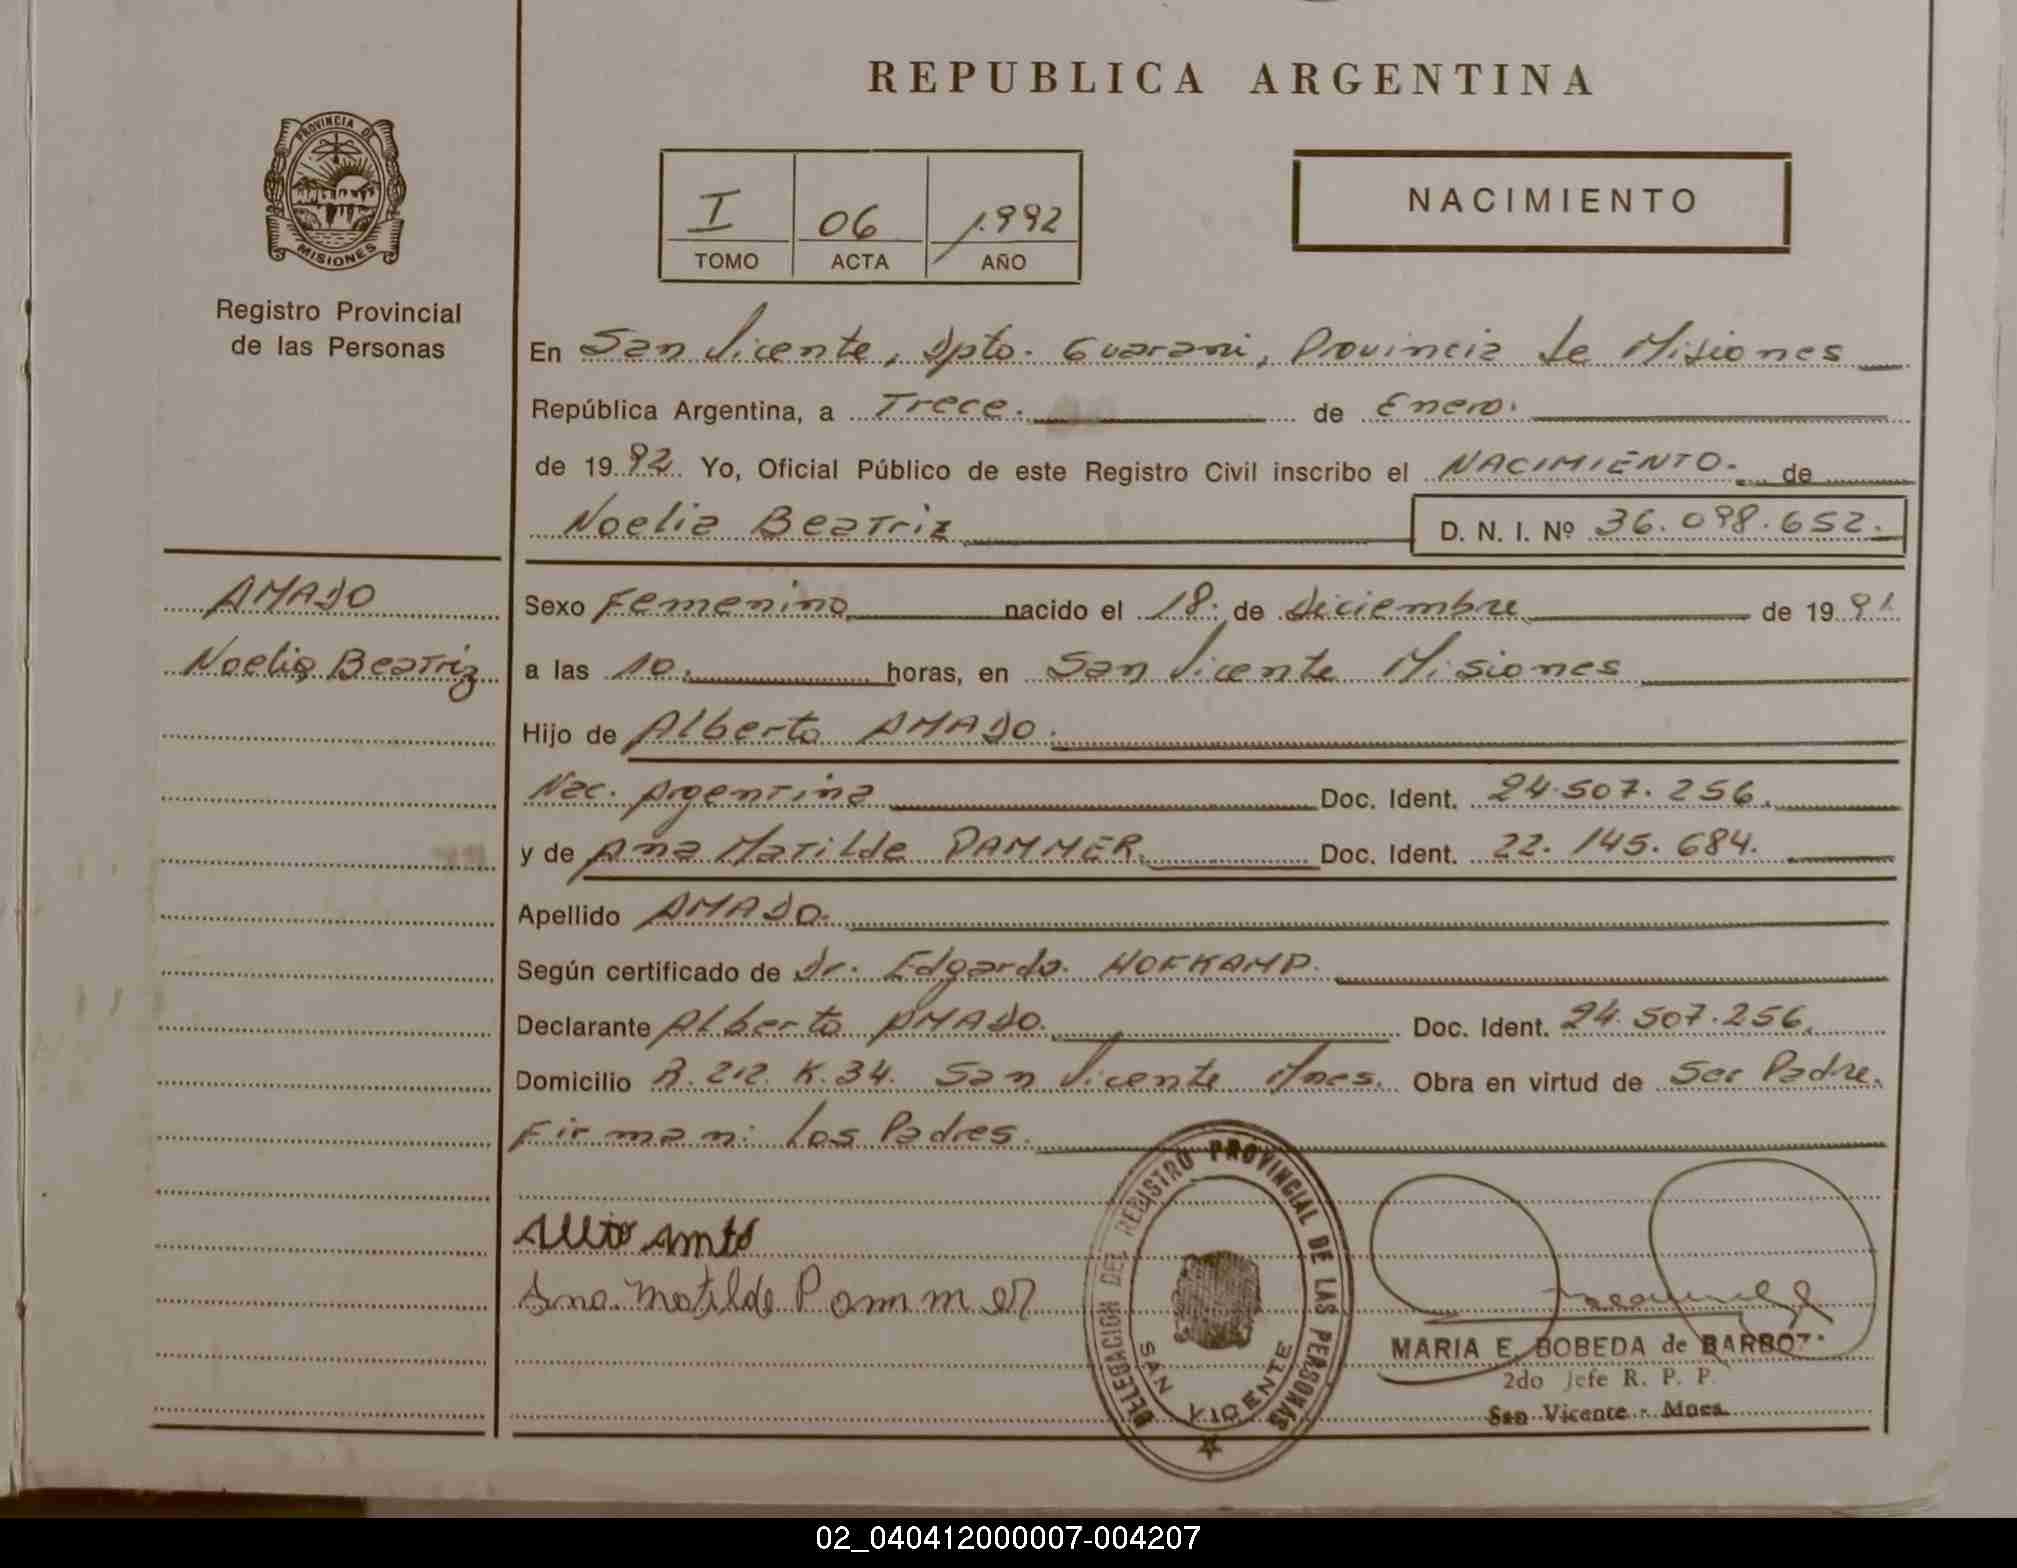 REPUBLICA ARGENTINA
PROVINCIA DE
MISIONES
Registro Provincial
de las Personas
I 06 1.992
TOMO ACTA AÑO
NACIMIENTO
En San Vicente, Dpto. Guarani, Provincia de Misiones
República Argentina, a Trece. de Enero.
de 1992 Yo, Oficial Público de este Registro Civil inscribo el NACIMIENTO. de
Noelia Beatriz D. N. I. Nº 36.098.652.
AMADO
Noelia Beatriz
Sexo Femenino nacido el 18. de Diciembre de 1991.
a las 10. horas, en San Vicente Misiones
Hijo de Alberto AMADO.
Nac. Argentina Doc. Ident. 24.507.256.
y de Ana Matilde DAMMER. Doc. Ident. 22.145.684.
Apellido AMADO.
Según certificado de Dr. Edgardo. HOFKAMP.
Declarante Alberto AMADO. Doc. Ident. 24.507.256.
Domicilio R. 212. K.34. San Vicente Mnes. Obra en virtud de Ser Padre.
Firman: Los Padres.
Ana Matilde Pommer
DELEGACION DEL REGISTRO PROVINCIAL DE LAS PERSONAS
SAN VICENTE
MARIA E. BOBEDA de BARBOZA
2do Jefe R. P. P.
San Vicente - Mnes.
02_040412000007-004207